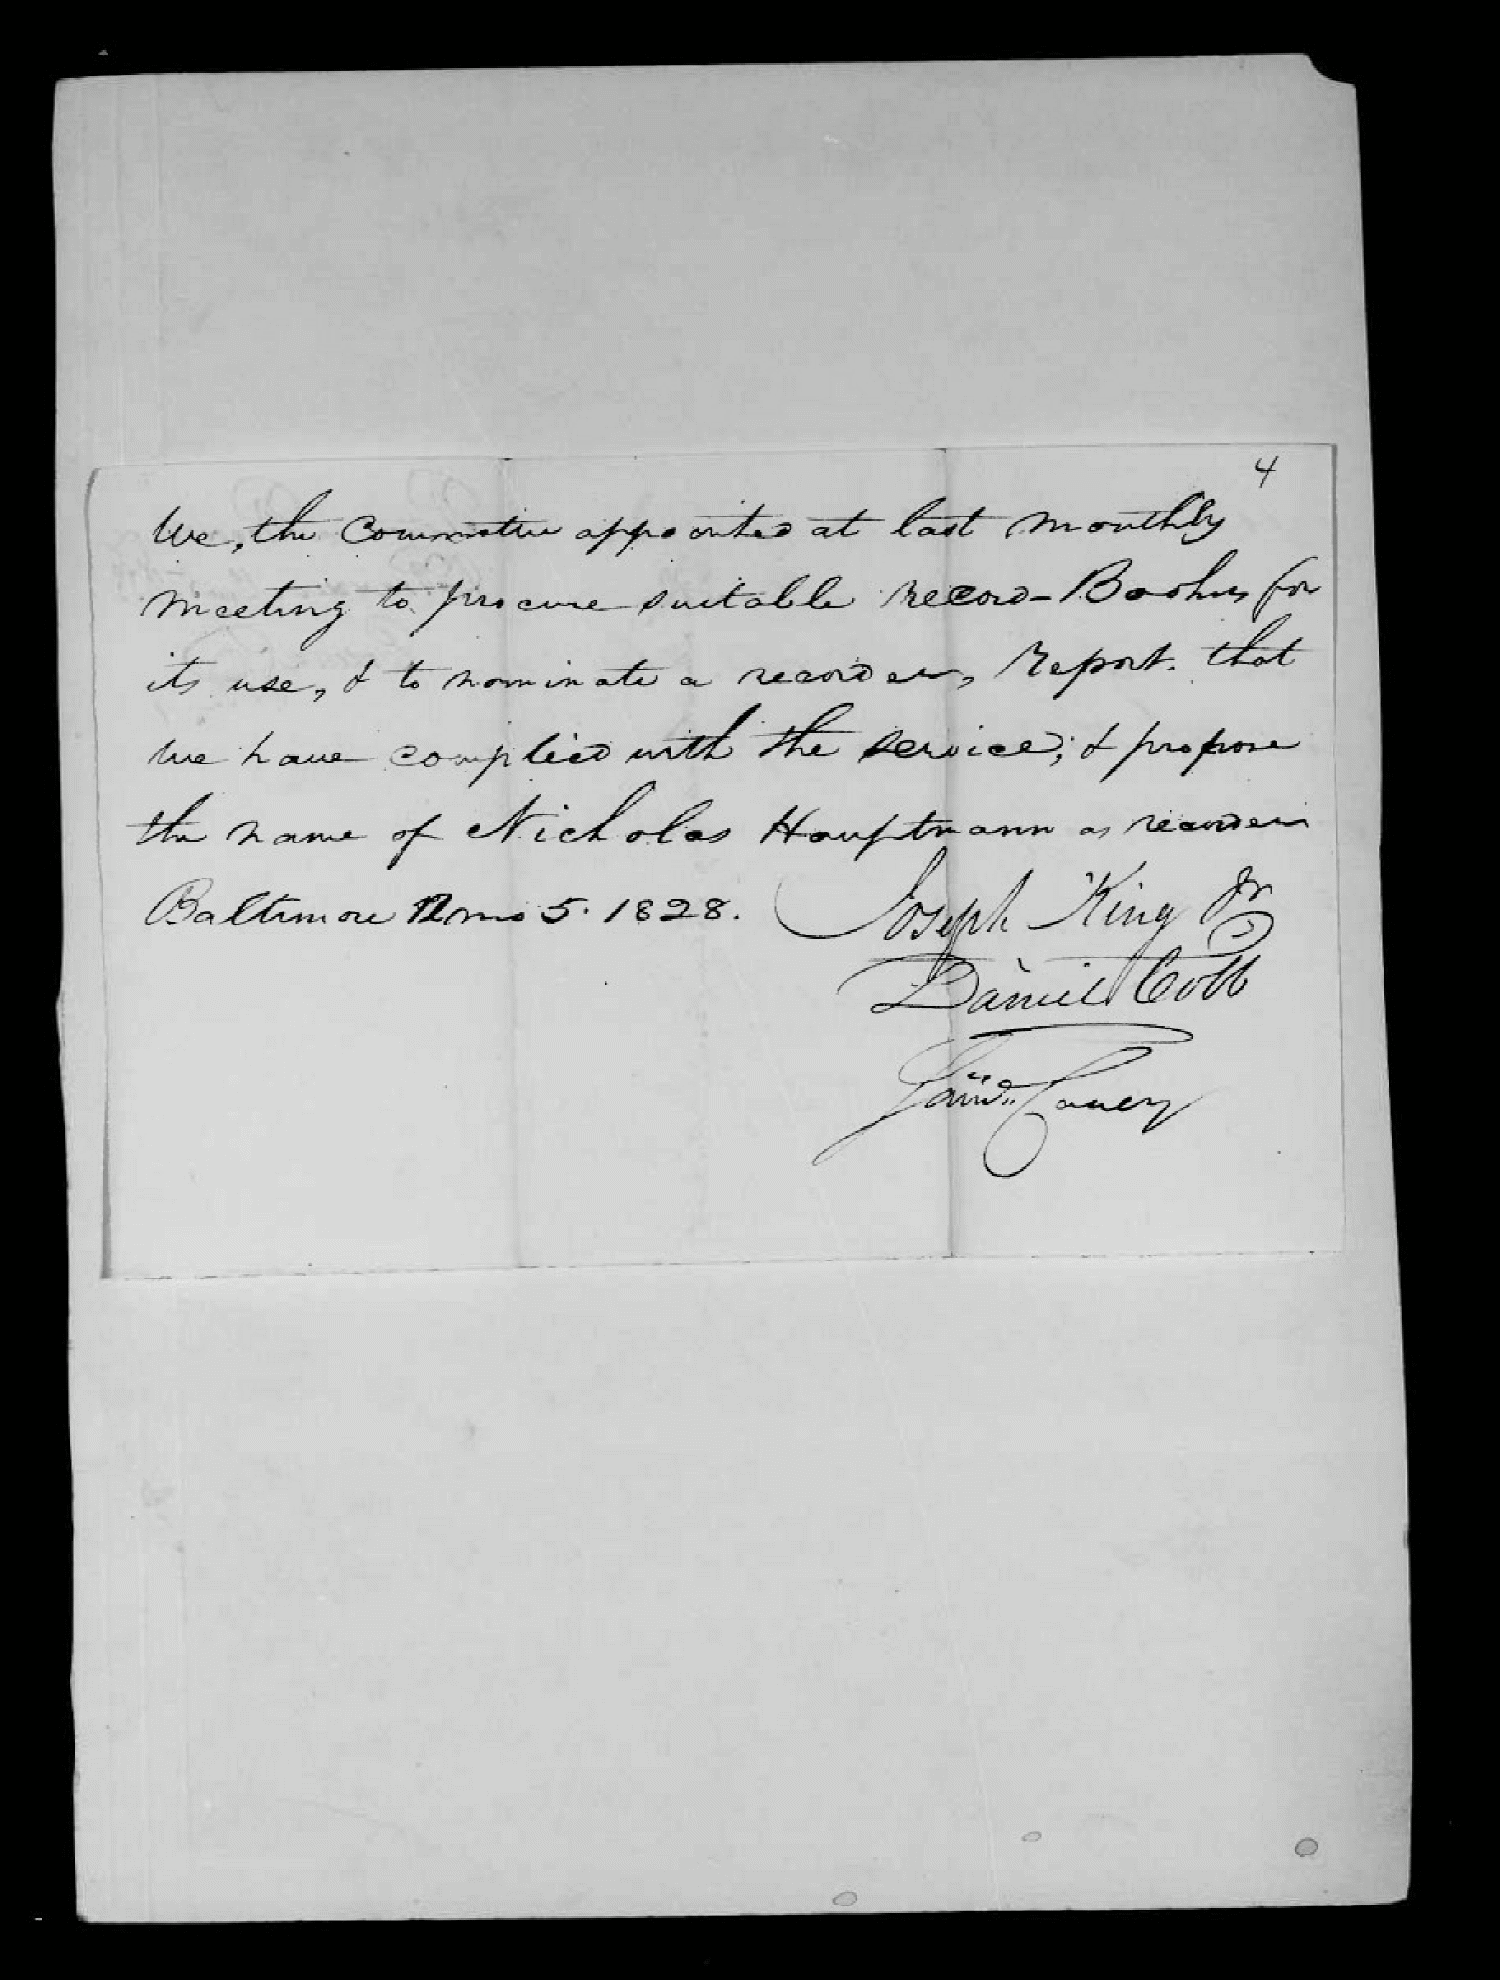 4
We, the Committee appointed at last monthly
meeting to procure suitable record-Books for
its use, & to nominate a recorder, report that
we have complied with the service; & propose
the name of Nicholas Hauptmann as recorder
Baltimore 12 mo 5. 1828.
Joseph King Jr
Daniel Cobb
Carey